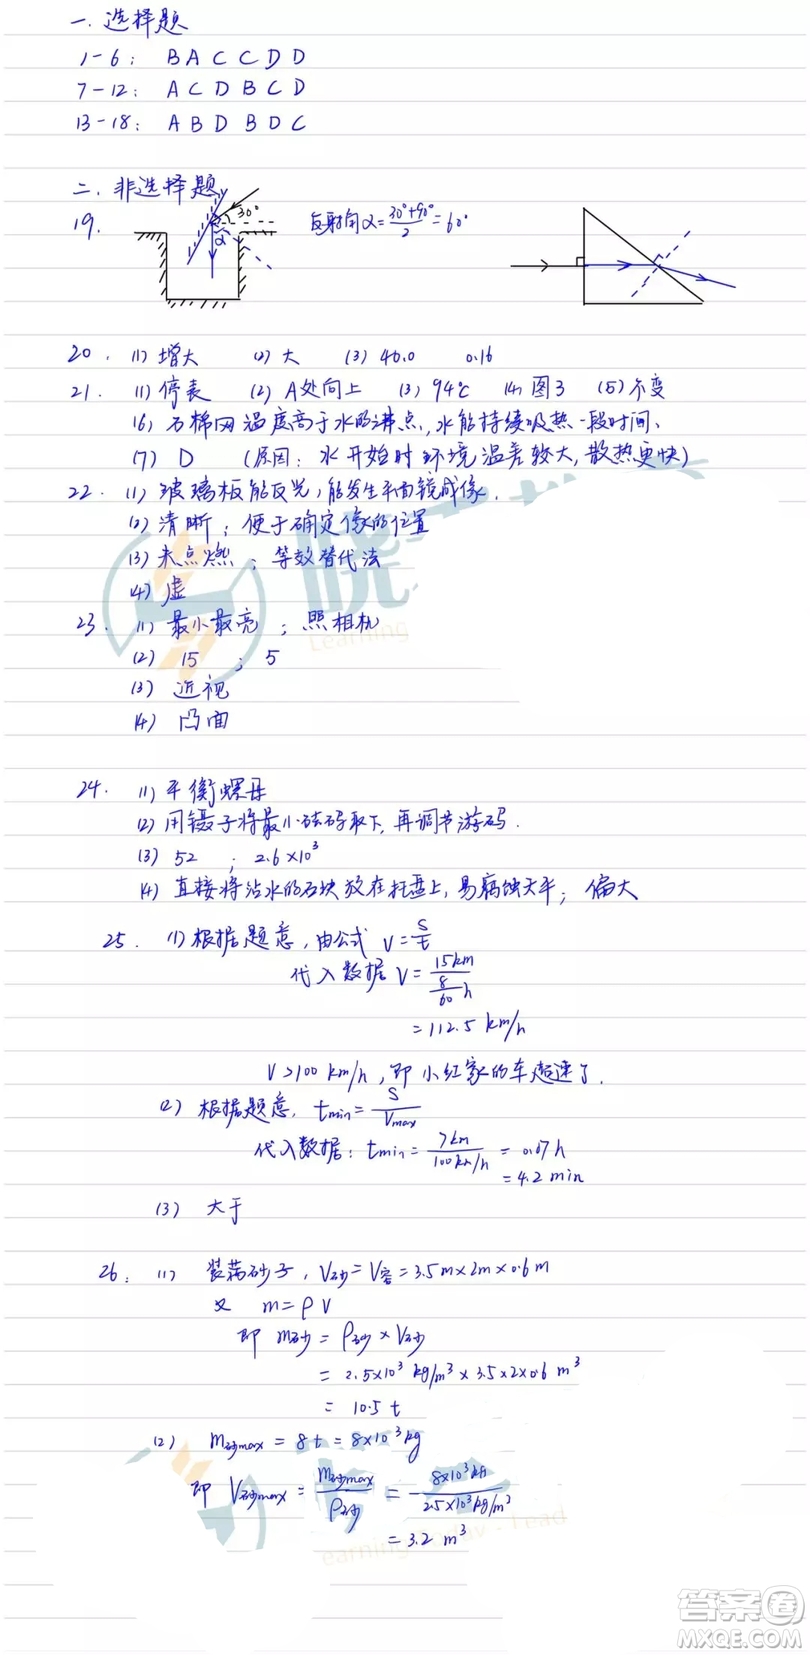 一. 选择题
1-6: B A C C D D
7-12: A C D B C D
13-18: A B D B D C
二. 非选择题
19. 30° α 反射角α=\frac{30°+90°}{2}=60°
20. (1) 增大 (2) 大 (3) 40.0 0.16
21. (1) 停表 (2) A处向上 (3) 94℃ (4) 图3 (5) 不变
(6) 石棉网温度高于水的沸点, 水能持续吸热一段时间.
(7) D (原因: 水开始时环境温差较大, 散热更快)
22. (1) 玻璃板能反光, 能发生平面镜成像.
(2) 清晰; 便于确定像的位置
(3) 未点燃; 等效替代法
(4) 虚
23. (1) 最小最亮; 照相机
(2) 15; 5
(3) 近视
(4) 凸面
24. (1) 平衡螺母
(2) 用镊子将最小砝码取下, 再调节游码.
(3) 52; 2.6×10³
(4) 直接将沾水的石块放在托盘上, 易腐蚀天平; 偏大
25. (1) 根据题意, 由公式 V=\frac{S}{t}
代入数据 V=\frac{15km}{\frac{8}{60}h}
=112.5 km/h
V>100 km/h, 即小红家的车超速了.
(2) 根据题意, tmin=\frac{S}{Vmax}
代入数据: tmin=\frac{7km}{100km/h}=0.07h
=4.2 min
(3) 大于
26. (1) 装满砂子, V砂=V容=3.5m×2m×0.6m
又 m=ρV
即 m砂=ρ砂×V砂
=2.5×10³ kg/m³×3.5×2×0.6 m³
=10.5 t
(2) m砂max=8t=8×10³kg
即 V砂max=\frac{m砂max}{ρ砂}=\frac{8×10³kg}{2.5×10³kg/m³}
=3.2 m³
答案圈
MXQE.COM